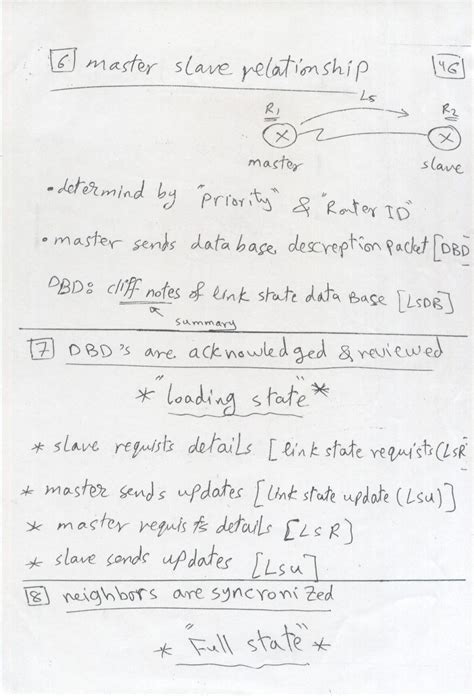 6 master slave relationship 46
Ls
R1 R2
X X
master slave
• determind by "Priority" & "Router ID"
• master sends database descreption packet [DBD
DBD: cliff notes of link state data Base [LSDB]
summary
7 DBD's are acknowledged & reviewed
* "loading state" *
* slave requists details [link state requists (LSR
* master sends updates [link state update (Lsu)]
* master requists details [LSR]
* slave sends updates [Lsu]
8 neighbors are syncronized
* "Full state" *